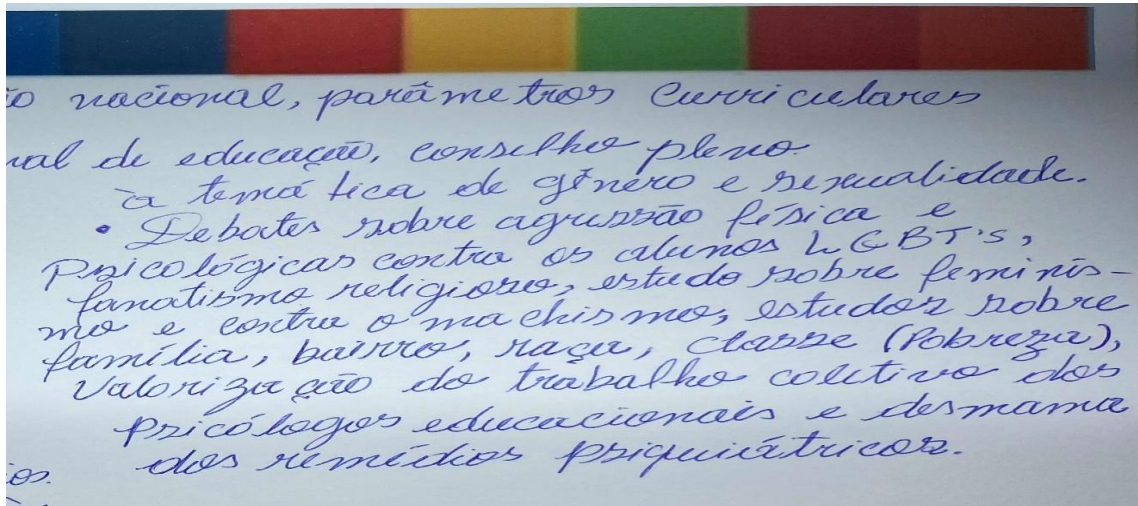 io nacional, parâmetros curriculares
nal de educação, conselho pleno.
à temática de gênero e sexualidade.
• Debates sobre agressão física e
psicológicas contra os alunos LGBT'S,
fanatismo religioso, estudo sobre feminis-
mo e contra o machismo, estudos sobre
família, bairro, raça, classe (Pobreza),
Valorização do trabalho coletivo dos
psicólogos educacionais e desmama
dos remédios psiquiátricos.
ios.